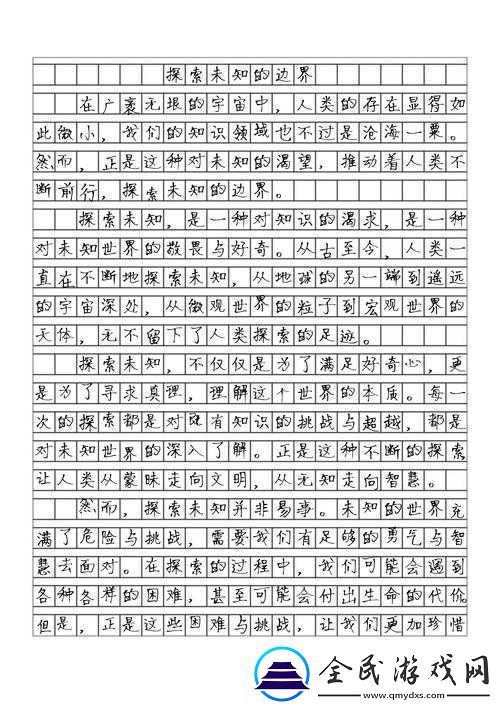 探索未知的边界
在广袤无垠的宇宙中，人类的存在显得如
此微小，我们的知识领域也不过是沧海一粟。
然而，正是这种对未知的渴望，推动着人类不
断前行，探索未知的边界。
探索未知，是一种对知识的渴求，是一种
对未知世界的敬畏与好奇。从古至今，人类一
直在不断地探索未知，从地球的另一端到遥远
的宇宙深处，从微观世界的粒子到宏观世界的
天体，无不留下了人类探索的足迹。
探索未知，不仅仅是为了满足好奇心，更
是为了寻求真理，理解这个世界的本质。每一
次的探索都是对既有知识的挑战与超越，都是
对未知世界的深入了解。正是这种不断的探索
让人类从蒙昧走向文明，从无知走向智慧。
然而，探索未知并非易事。未知的世界充
满了危险与挑战，需要我们有足够的勇气与智
慧去面对。在探索的过程中，我们可能会遇到
各种各样的困难，甚至可能会付出生命的代价。
但是，正是这些困难与挑战，让我们更加珍惜
全民游戏网
www.qmydxs.com